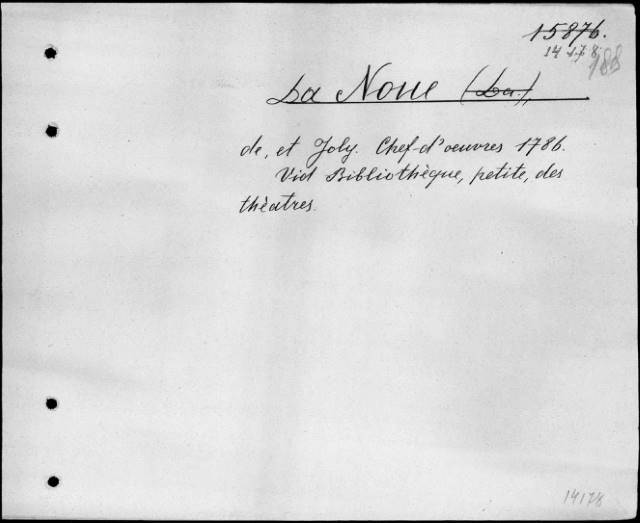 15876.
14178
188
La Noue (La.),
de, et Joly. Chef-d'oeuvres 1786.
Vid Bibliothèque, petite, des
théatres.
14178